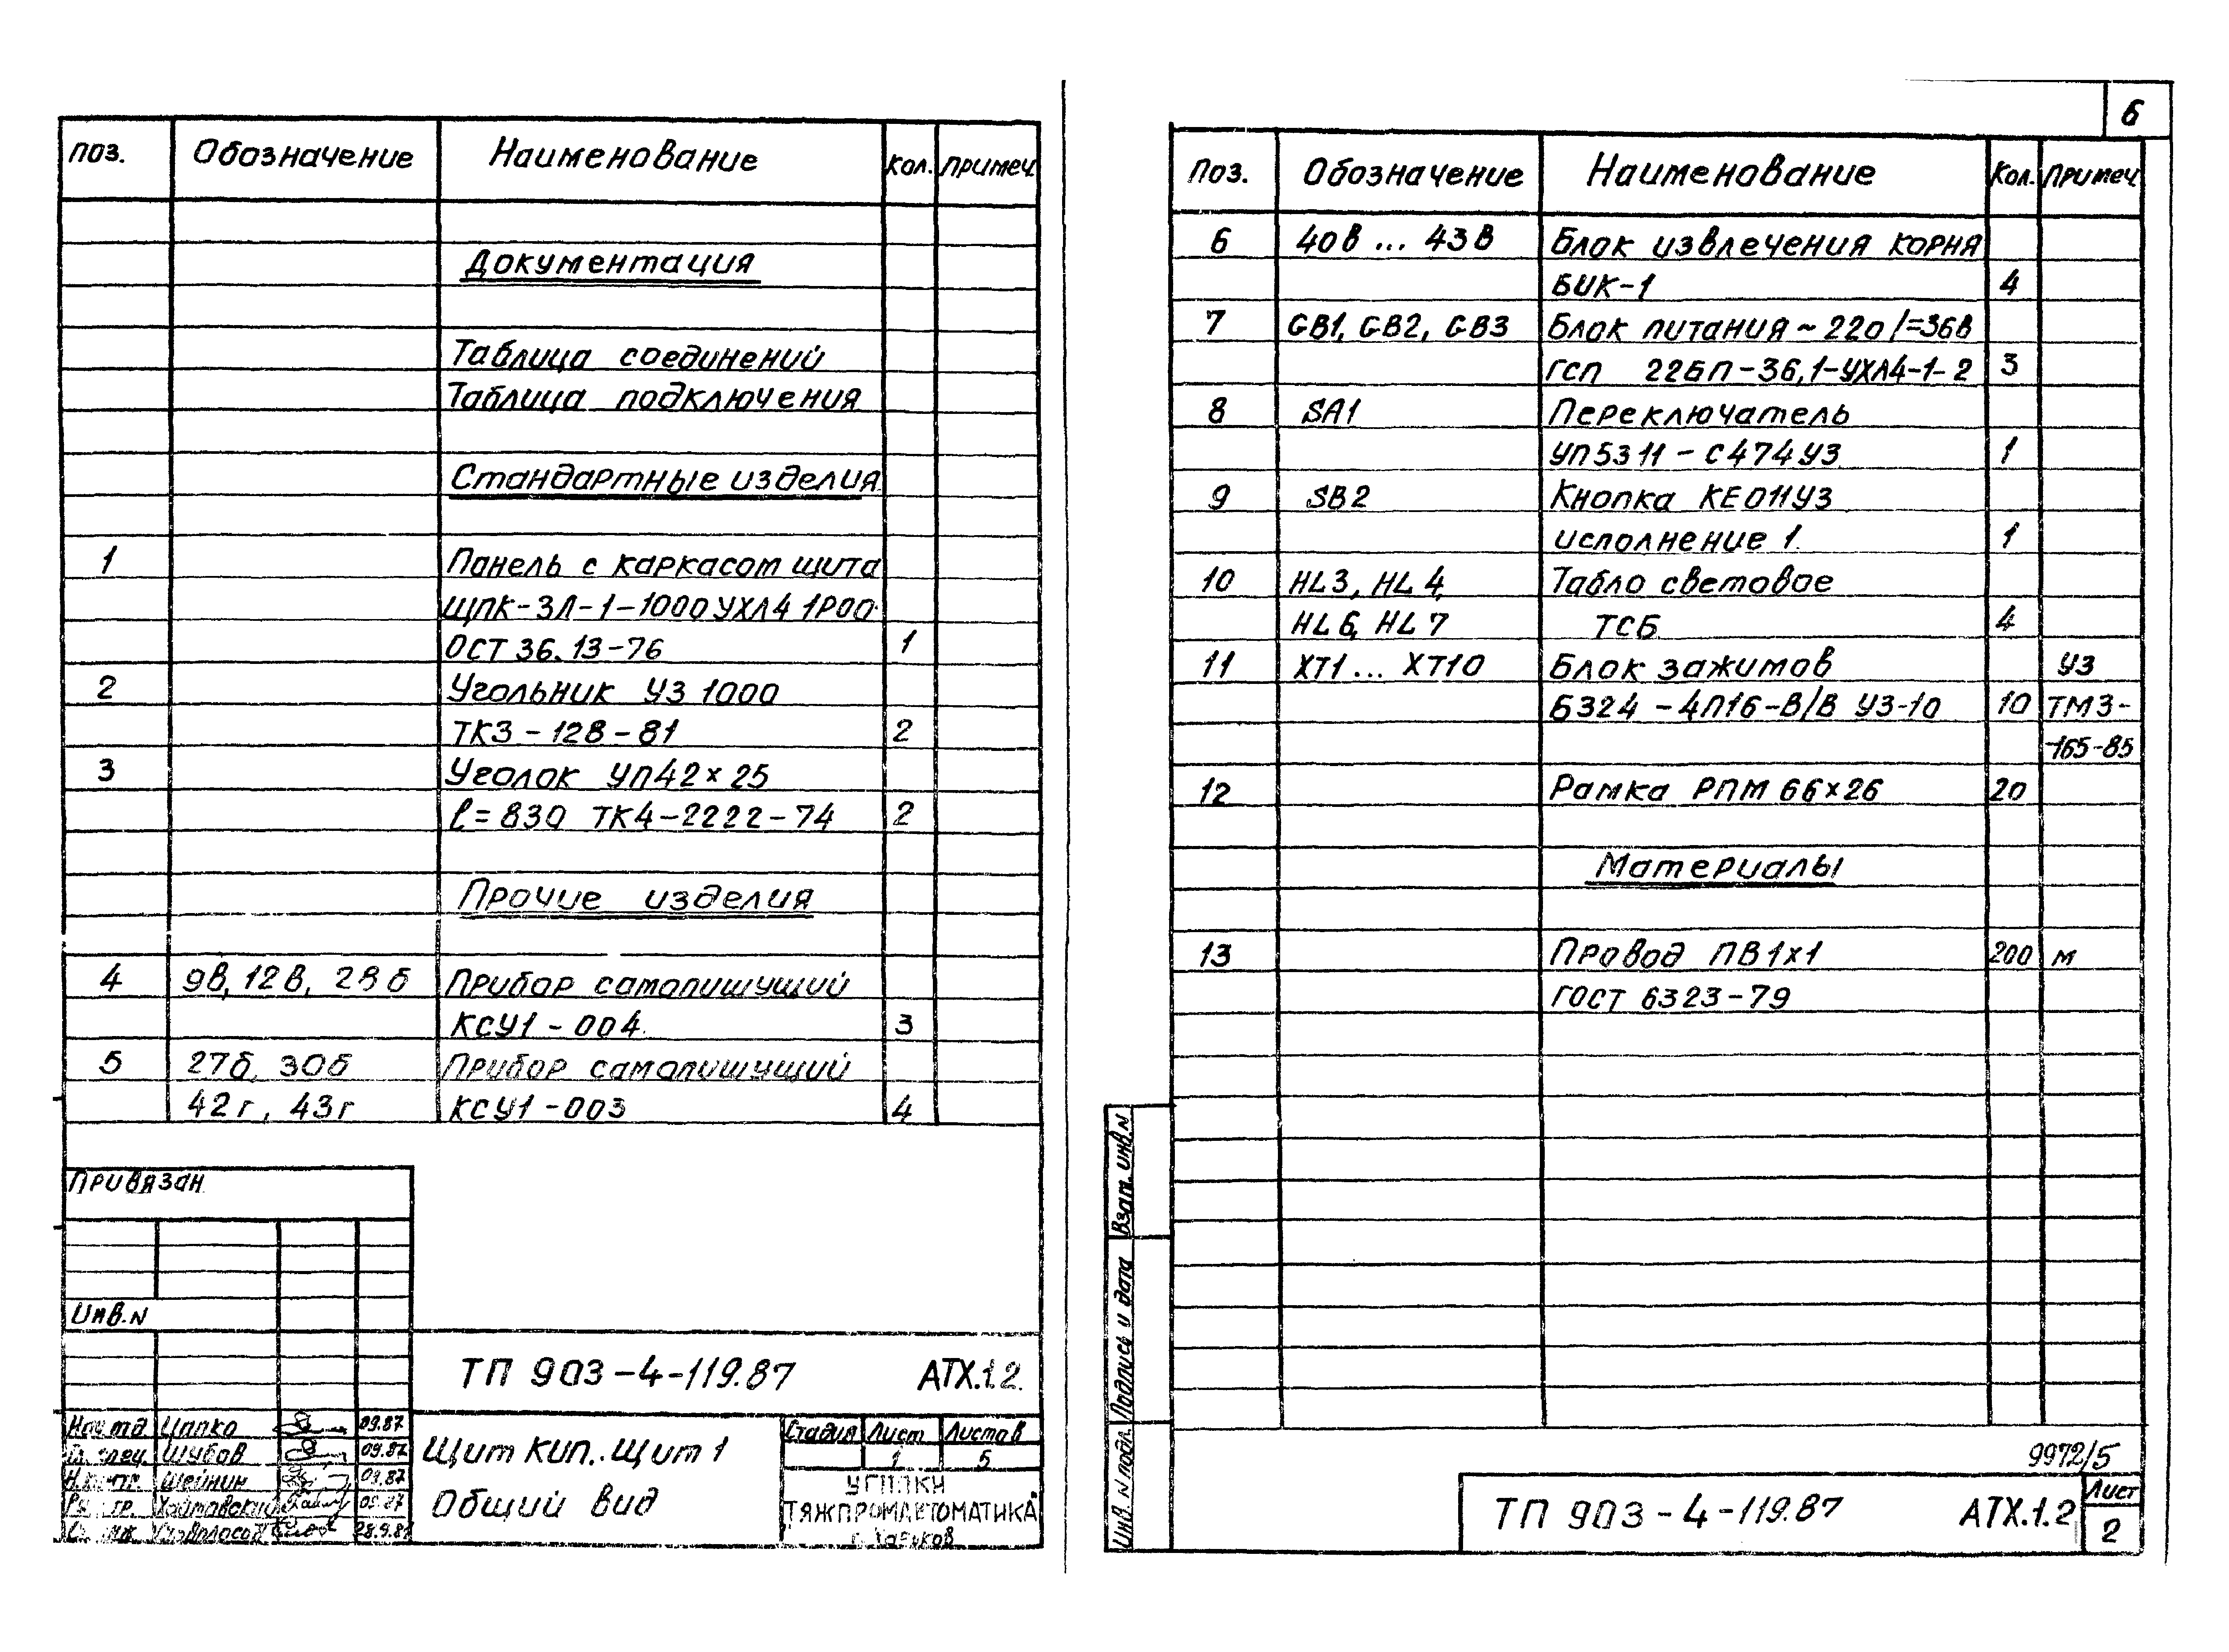 поз. Обозначение Наименование Кол. Примеч.
Документация
Таблица соединений
Таблица подключения
Стандартные изделия
1 Панель с каркасом щита
ЩПК-ЗЛ-1-1000 УХЛ4 1Р00
ОСТ 36.13-76 1
2 Угольник УЗ 1000
ТКЗ-128-81 2
3 Уголок УП42х25
ℓ=830 ТК4-2222-74 2
Прочие изделия
4 9в, 12в, 28б Прибор самопишущий
КСУ1-004 3
5 27б, 30б Прибор самопишущий
42г, 43г КСУ1-003 4
Привязан
Инв.N
ТП 903-4-119.87 АТХ.1.2
Цапко 09.87
Шубов 09.87
Шейнин 09.87
Щит КИП. Щит 1
Общий вид
Стадия Лист Листов
1 5
ТЯЖПРОМАВТОМАТИКА
г. Харьков
6
Поз. Обозначение Наименование Кол. Примеч.
6 40в ... 43в Блок извлечения корня
БИК-1 4
7 GB1, GB2, GB3 Блок питания ~220/=36в
ГСП 22БП-36,1-УХЛ4-1-2 3
8 SA1 Переключатель
УП5311-С474У3 1
9 SB2 Кнопка КЕ011У3
исполнение 1 1
10 HL3, HL4, Табло световое
HL6, HL7 ТСБ 4
11 XT1 ... XT10 Блок зажимов УЗ
БЗ24-4П16-В/В У3-10 10 ТМ3-
-165-85
12 Рамка РПМ 66х26 20
Материалы
13 Провод ПВ 1х1 200 м
ГОСТ 6323-79
Взам. инв.N
Подпись и дата
Инв. N подл.
9972/5
ТП 903-4-119.87 АТХ.1.2
Лист
2